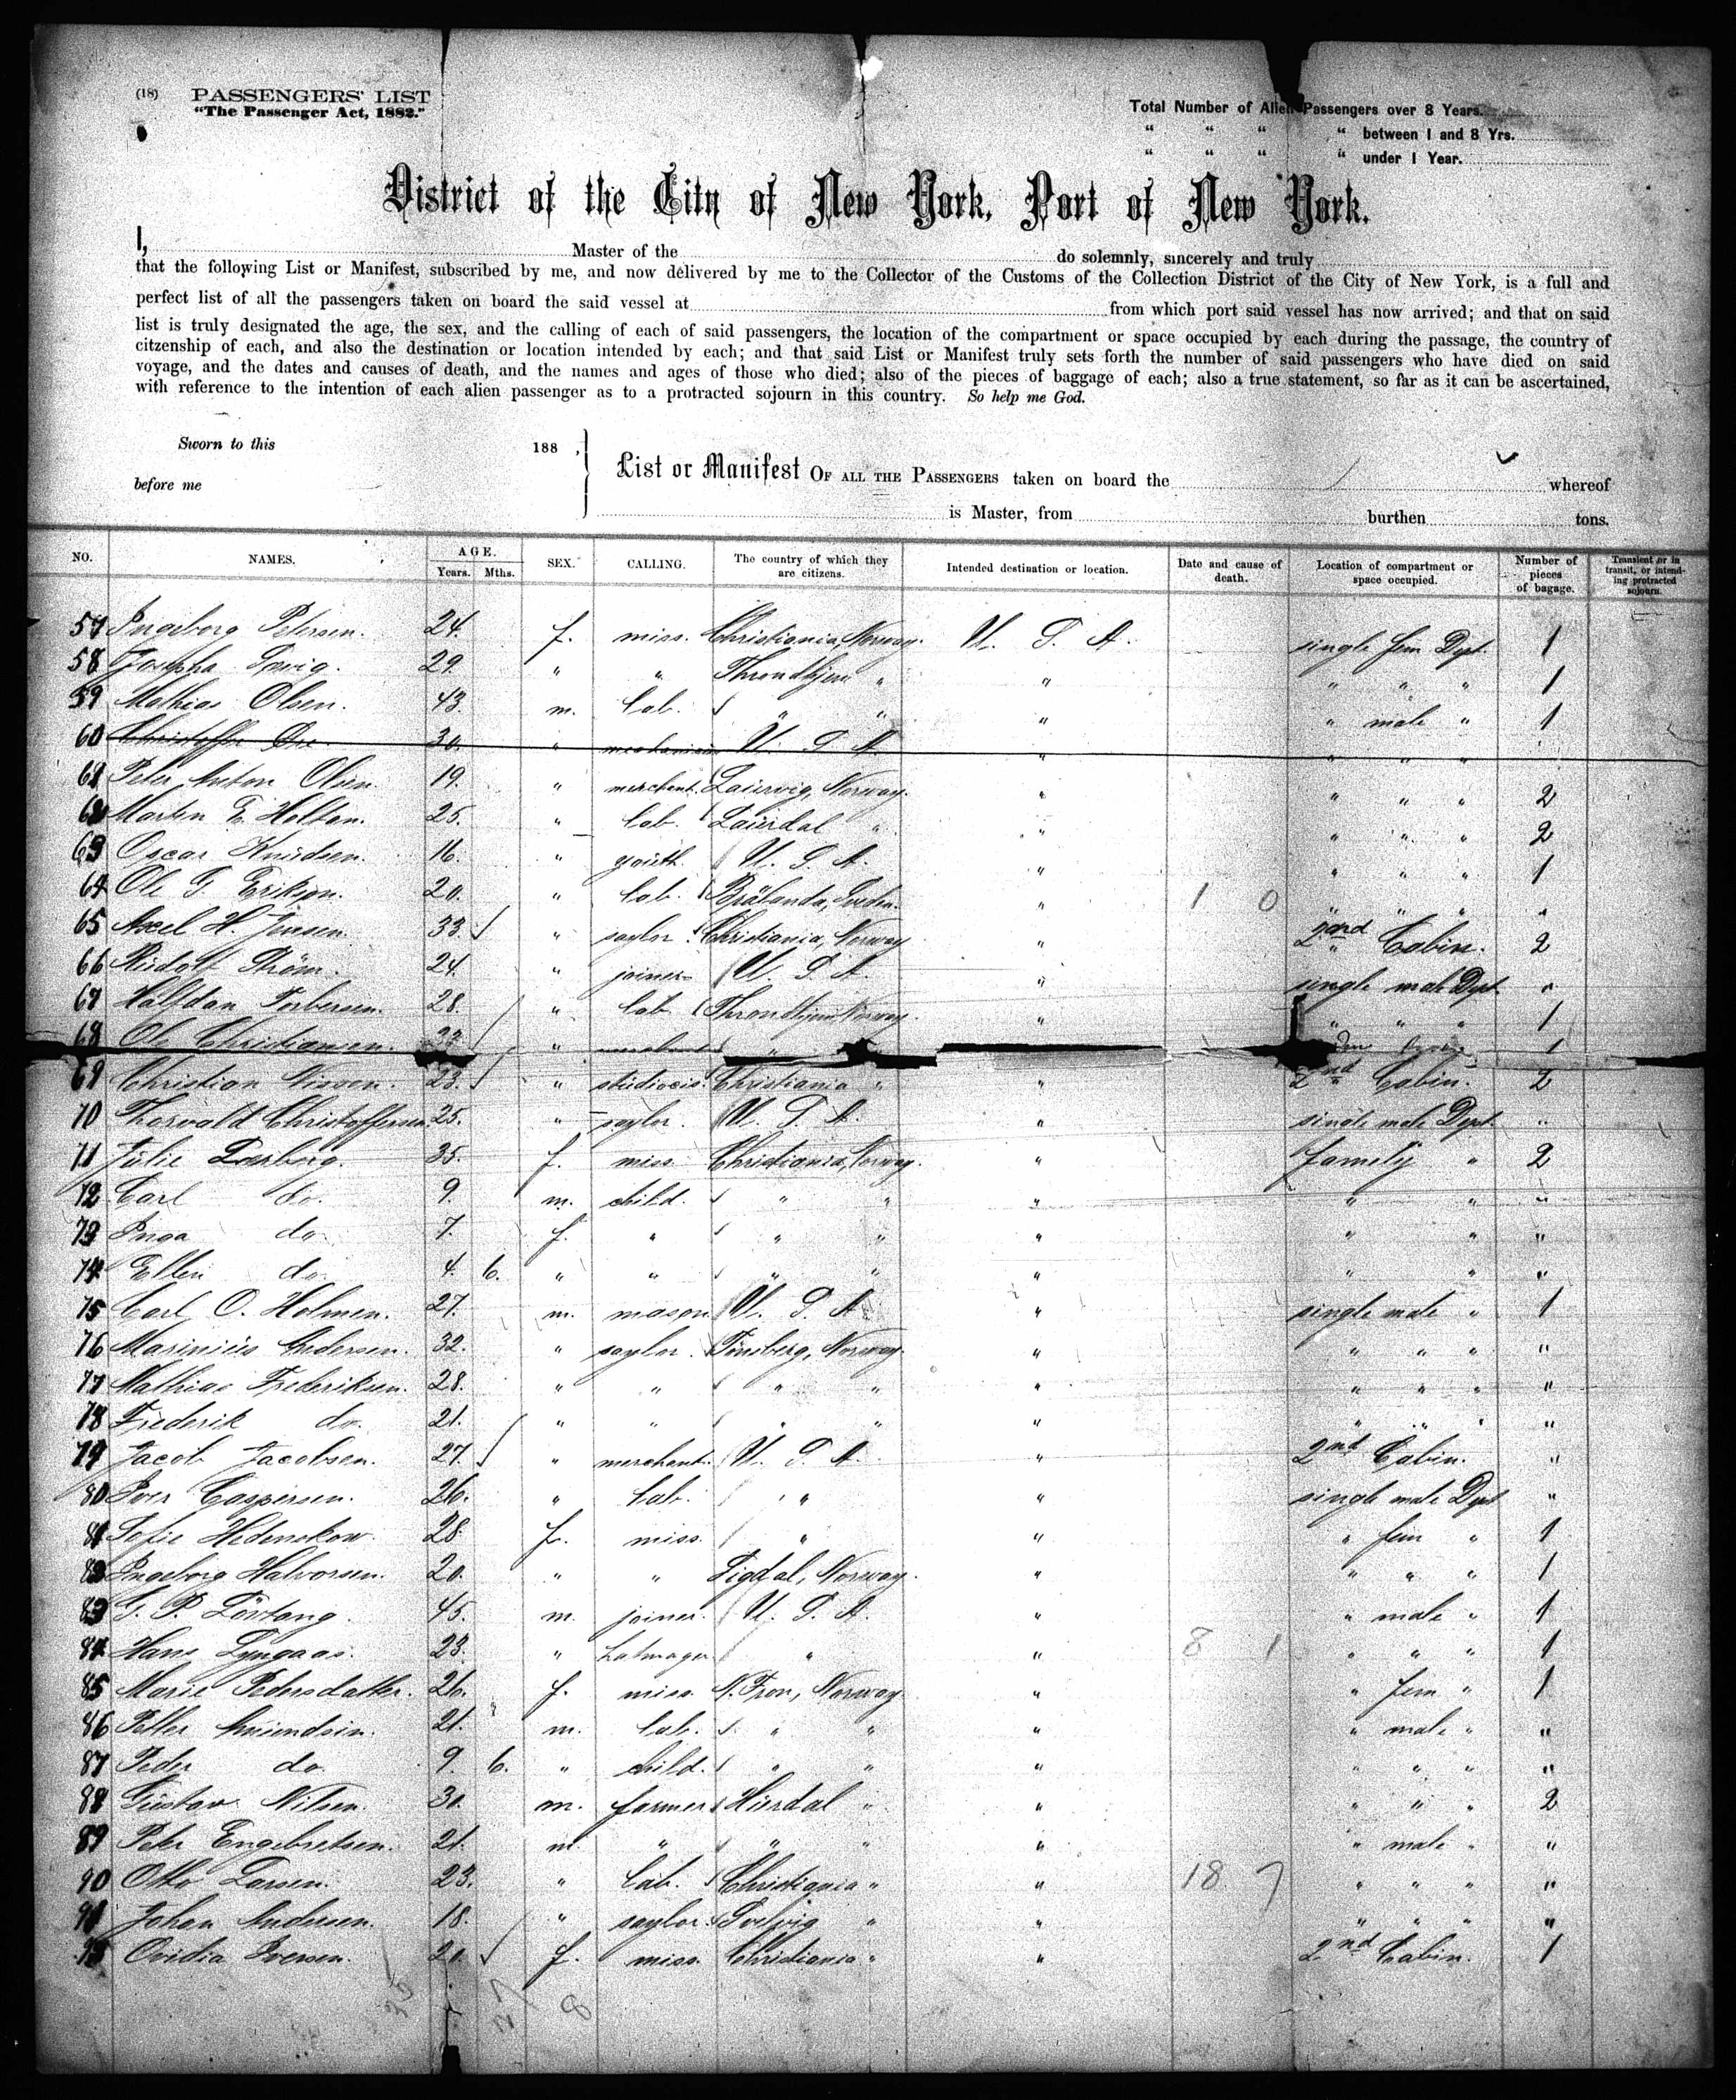 (18) PASSENGERS' LIST
"The Passenger Act, 1882."
Total Number of Alien Passengers over 8 Years.
" " " " between 1 and 8 Yrs.
" " " " under 1 Year.
District of the City of New York, Port of New York.
I, Master of the do solemnly, sincerely and truly
that the following List or Manifest, subscribed by me, and now delivered by me to the Collector of the Customs of the Collection District of the City of New York, is a full and
perfect list of all the passengers taken on board the said vessel at from which port said vessel has now arrived; and that on said
list is truly designated the age, the sex, and the calling of each of said passengers, the location of the compartment or space occupied by each during the passage, the country of
citzenship of each, and also the destination or location intended by each; and that said List or Manifest truly sets forth the number of said passengers who have died on said
voyage, and the dates and causes of death, and the names and ages of those who died; also of the pieces of baggage of each; also a true statement, so far as it can be ascertained,
with reference to the intention of each alien passenger as to a protracted sojourn in this country. So help me God.
Sworn to this 188 ,
before me
List or Manifest OF ALL THE PASSENGERS taken on board the whereof
is Master, from burthen tons.
NO. NAMES. AGE. Years. Mths. SEX. CALLING. The country of which they are citizens. Intended destination or location. Date and cause of death. Location of compartment or space occupied. Number of pieces of bagage. Transient or in transit, or intending protracted sojourn.
57 Ingeborg Petersen. 24. f. miss. Christiania, Norway. U. S. A. single fem Dept. 1
58 Josepha 29. " " Throndhjem " " " " " 1
59 Mathias Olsen. 43. m. lab. " " " " male " 1
60 Christoffer 30. " mechanician U. S. A. " " " "
61 Peter Anton Olsen. 19. " merchant. Laurvig, Norway. " " " " 2
62 Morten E. Holten. 25. " lab. Laurdal " " " " " 2
63 Oscar Knudsen. 16. " youth U. S. A. " " " " 1
64 Ole G. Erikson. 20. " lab. Brålanda, Sweden. " 1 0 " " " "
65 Axel H. Jensen. 33. " saylor Christiania, Norway " 2nd Cabin. 2
66 Rudolf Strøm. 24. " joiner U. S. A. " single male Dept. "
67 Halfdan Torbersen. 28. " lab. Throndhjem, Norway. " " " " 1
68 Ole Christiansen. 23. " 1
69 Christian 23. " Christiania " " 2nd Cabin. 2
70 Thorvald Christoffersen 25. " saylor. U. S. A. " single male Dept. "
71 Julie 35. f. miss. Christiania, Norway. " family " 2
72 Carl do. 9. m. child. " " " " " "
73 Inga do. 7. f. " " " " " " "
74 Ellen do. 4. 6. " " " " " " " "
75 Carl O. Holmen. 27. m. mason U. S. A. " single male " 1
76 Marinius Andersen. 32. " saylor. Tönsberg, Norway. " " " " "
77 Mathias Frederiksen. 28. " " " " " " " " "
78 Frederik do. 21. " " " " " " " " "
79 Jacob Jacobsen. 27. " merchant. U. S. A. " 2nd Cabin. "
80 Iver Caspersen. 26. " lab. " " single male Dept "
81 Sofie Hedenskow. 28. f. miss. " " " fem " 1
82 Ingeborg Halvorsen. 20. " " Sigdal, Norway. " " " " 1
83 G. P. 45. m. joiner. U. S. A. " " male " 1
84 Hans Lyngaas. 23. " hatmager " " 8 1 " " " 1
85 Marie Pedersdatter. 26. f. miss. N. Fron, Norway " " fem " 1
86 Petter Amundsen. 21. m. lab. " " " " male " "
87 Peder do. 9. 6. " child. " " " " " " "
88 Gustav Nilsen. 30. m. farmer Hurdal " " " " " 2
89 Peter Engebretsen. 21. m. " " " " " male " "
90 Otto Larsen. 23. " lab. Christiania " " 18 7 " " " "
91 Johan Andersen. 18. " saylor. Svelvig " " " " " "
Ovidia Iversen. 20. f. miss. Christiania " " 2nd Cabin. 1
35 27 8